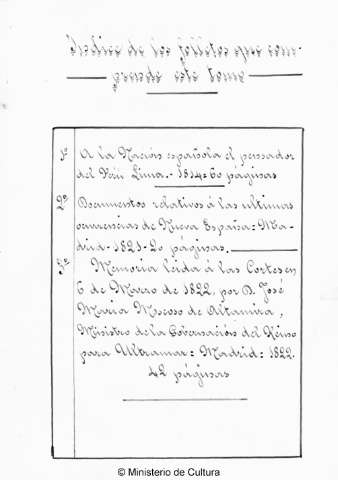 Indice de los folletos que com-
prende este tomo
1º A la Nación española el pensador
del Perú Lima.- 1814=60 páginas
2º Documentos relativos á las ultimas
ocurrencias de Nueva España=Ma-
drid-1821-20 páginas.
3º Memoria leida á las Cortes en
6 de Marzo de 1822, por D. José
Maria Moscoso de Altamira,
Ministro de la Gobernación del Reino
para Ultramar= Madrid= 1822.
42 páginas
© Ministerio de Cultura